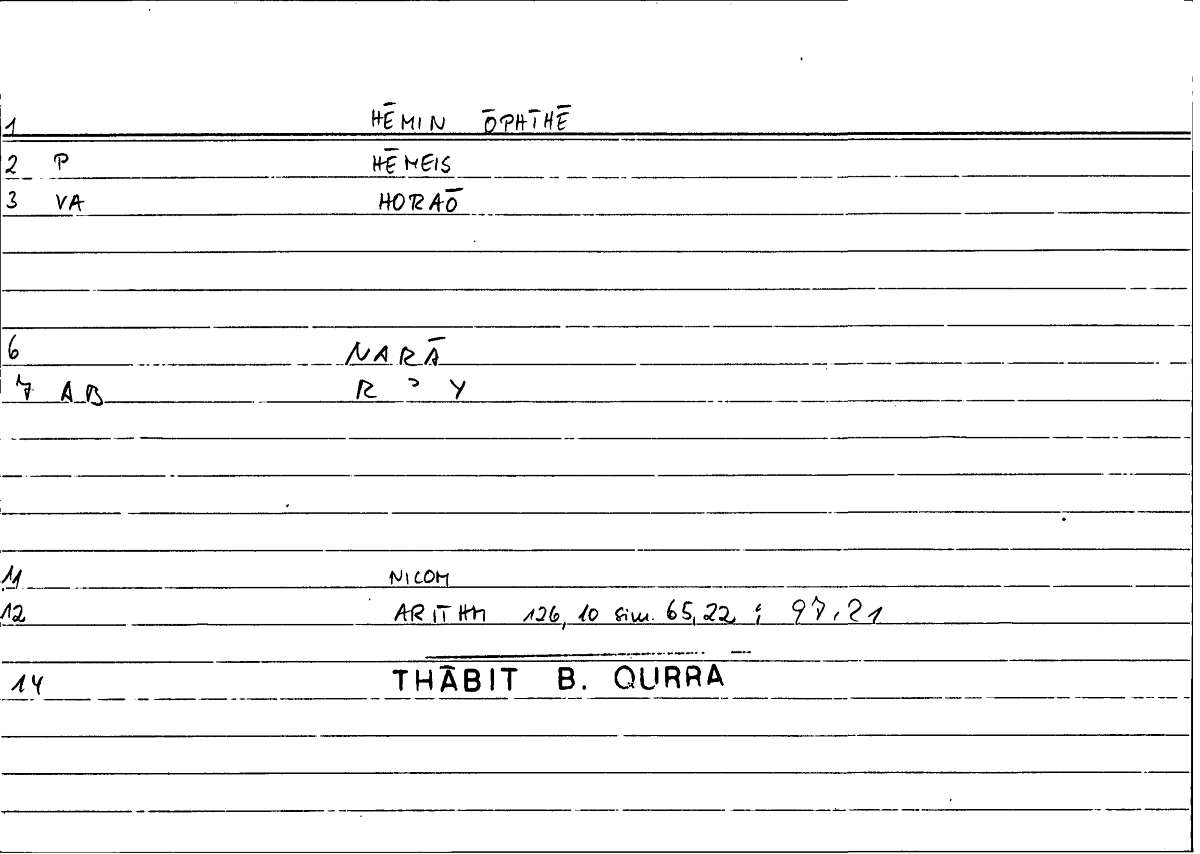 1 HĒMIN ŌPHTHĒ
2 P HĒMEIS
3 VA HORAŌ
6 NARĀ
7 AB R ʾ Y
11 NICOM
12 ARITHM 126,10 sim. 65,22 ; 97,21
14 THĀBIT B. QURRA